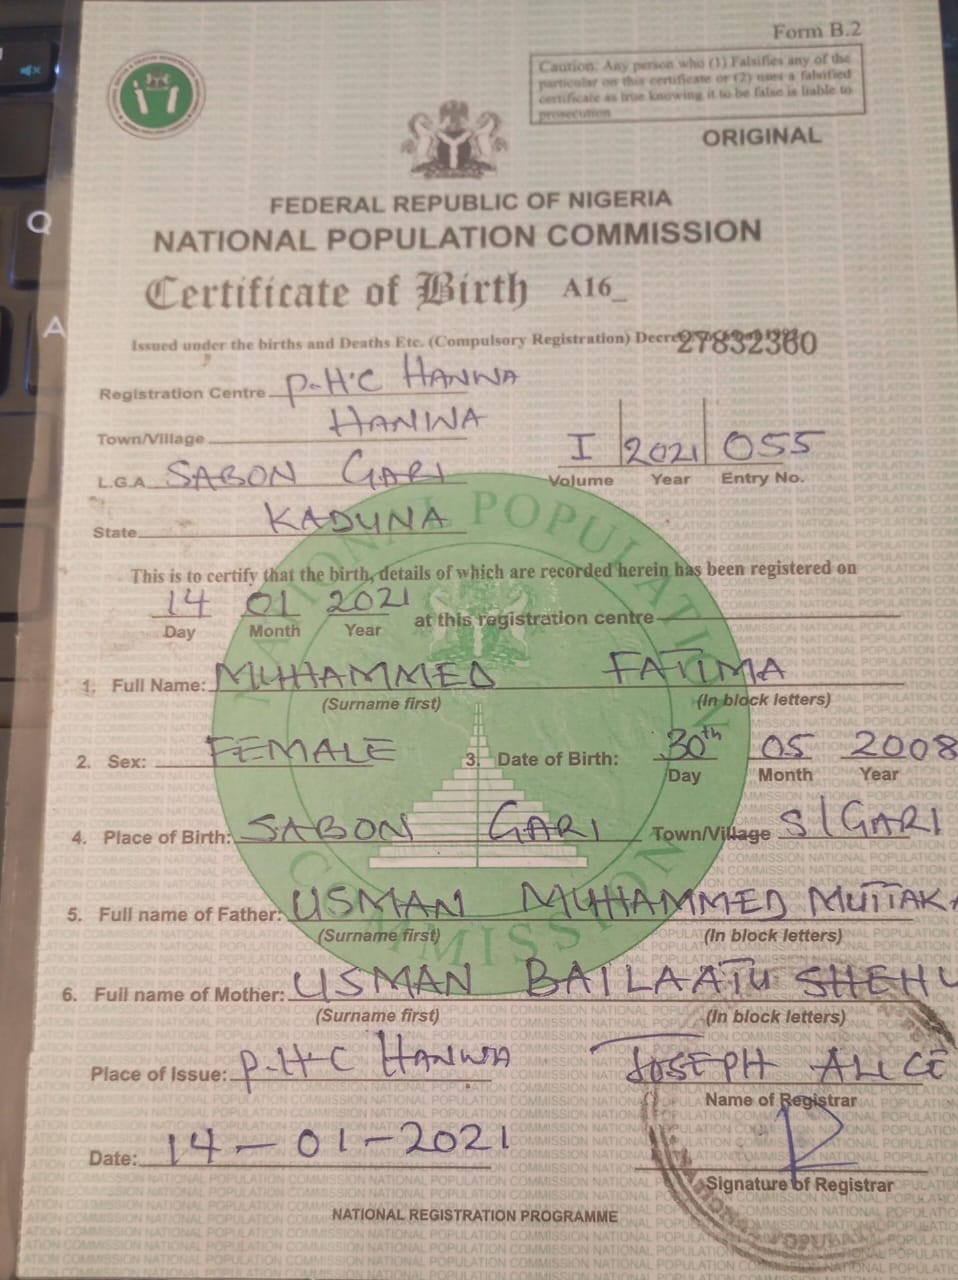 Form B.2
Caution: Any person who (1) Falsifies any of the
particular on this certificate or (2) uses a falsified
certificate as true knowing it to be false is liable to
prosecution
ORIGINAL
FEDERAL REPUBLIC OF NIGERIA
NATIONAL POPULATION COMMISSION
Certificate of Birth A16_
Issued under the births and Deaths Etc. (Compulsory Registration) 27832360
Registration Centre P.H.C HANWA
Town/Village HANWA
I 2021 055
Volume Year Entry No.
L.G.A SABON GARI
State KADUNA
This is to certify that the birth, details of which are recorded herein has been registered on
14 01 2021 at this registration centre
Day Month Year
1. Full Name: MUHAMMED FATIMA
(Surname first) (In block letters)
2. Sex: FEMALE 3. Date of Birth: 30th 05 2008
Day Month Year
4. Place of Birth: SABON GARI Town/Village S/GARI
5. Full name of Father: USMAN MUHAMMED
(Surname first) (In block letters)
6. Full name of Mother: USMAN BAILAATU SHEHU
(Surname first) (In block letters)
Place of Issue: P.H.C HANWA JOSEPH ALICE
Name of Registrar
Date: 14-01-2021
Signature of Registrar
NATIONAL REGISTRATION PROGRAMME